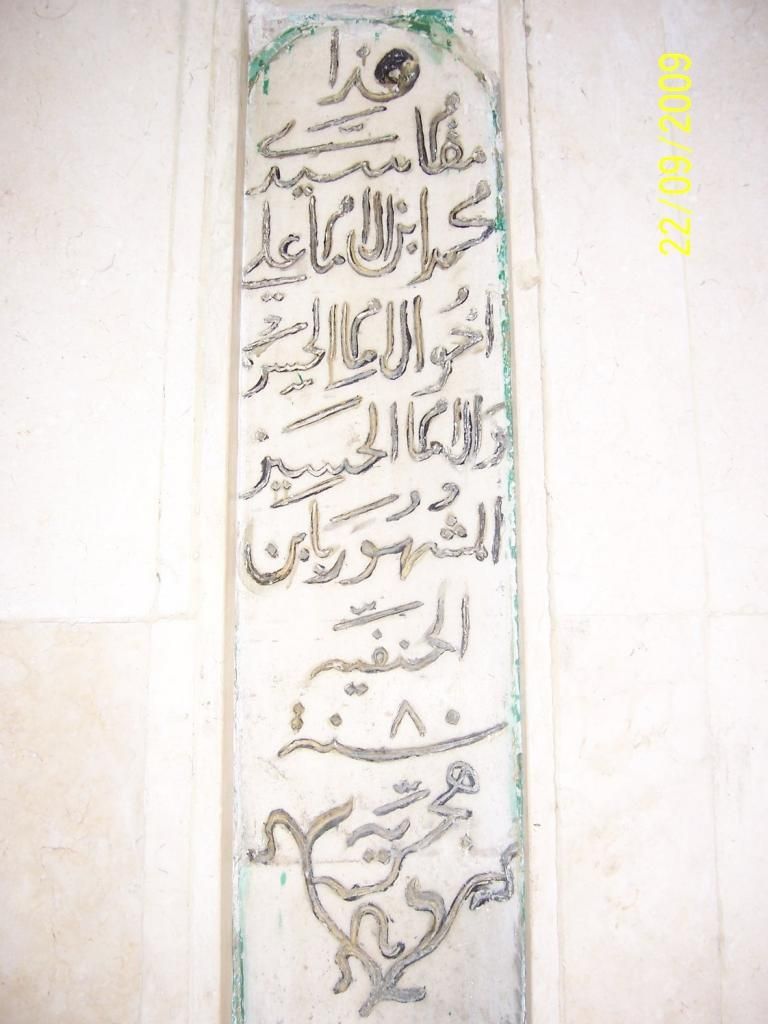 هذا
مقام سيدي
محمد ابن الامام علي
اخو الامام الحسن
والامام الحسين
المشهور بابن
الحنفية
سنة ٨٠
هجرية
22/09/2009